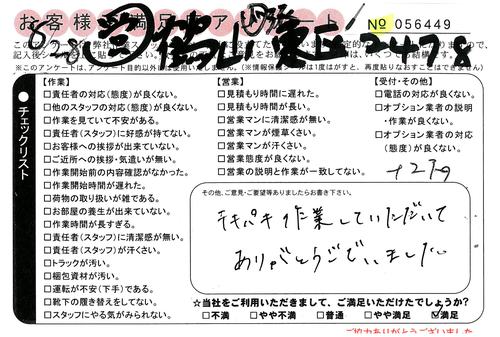 お客様 満足 アンケート
№ 056449
※このアンケートは、アンケート目的以外には使用いたしません。
チェックリスト
【作業】
□責任者の対応(態度)が良くない。
□他のスタッフの対応(態度)が良くない。
□作業を見ていて不安がある。
□責任者(スタッフ)に好感が持てない。
□お客様への挨拶が出来ていない。
□ご近所への挨拶・気遣いが無い。
□作業開始前の内容確認がなかった。
□作業開始時間が遅れた。
□荷物の取り扱いが雑である。
□お部屋の養生が出来ていない。
□作業時間が長すぎる。
□責任者(スタッフ)に清潔感が無い。
□責任者(スタッフ)が汗くさい。
□トラックが汚い。
□梱包資材が汚い。
□運転が不安(下手)である。
□靴下の履き替えをしてない。
□スタッフにやる気がみられない。
【営業】
□見積もり時間に遅れた。
□見積もり時間が長い。
□営業マンに清潔感が無い。
□営業マンが煙草くさい。
□営業マンが汗くさい。
□営業態度が良くない。
□営業の説明と作業が一致してない。
【受付・その他】
□電話の対応が良くない。
□オプション業者の説明
・作業が良くない。
□オプション業者の対応
(態度)が良くない。
その他、ご意見・ご要望等ありましたらお書き下さい。
テキパキ作業していただいて
ありがとうございました
☆当社をご利用いただきまして、ご満足いただけたでしょうか?
□不満 □やや不満 □普通 □やや満足 ☑満足
ご協力ありがとうございました